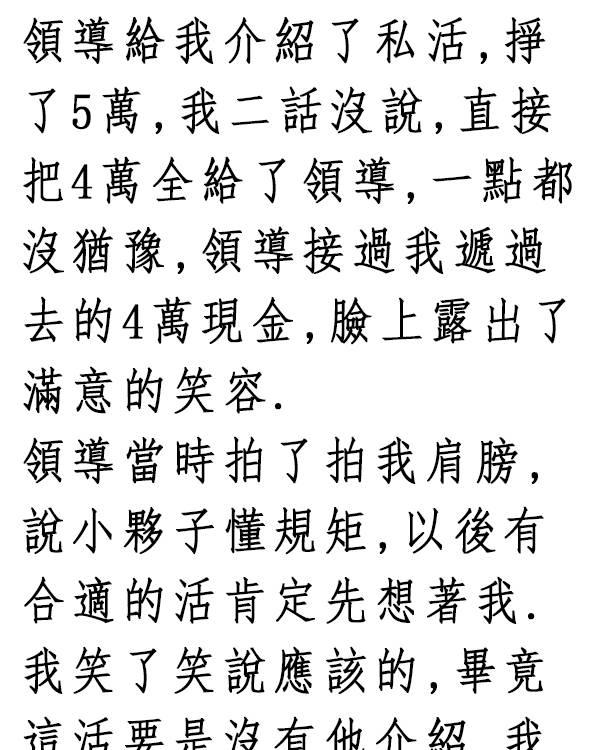 領導給我介紹了私活,掙
了5萬,我二話沒說,直接
把4萬全給了領導,一點都
沒猶豫,領導接過我遞過
去的4萬現金,臉上露出了
滿意的笑容.
領導當時拍了拍我肩膀,
說小夥子懂規矩,以後有
合適的活肯定先想著我.
我笑了笑說應該的,畢竟
這活要是沒有他介紹,我